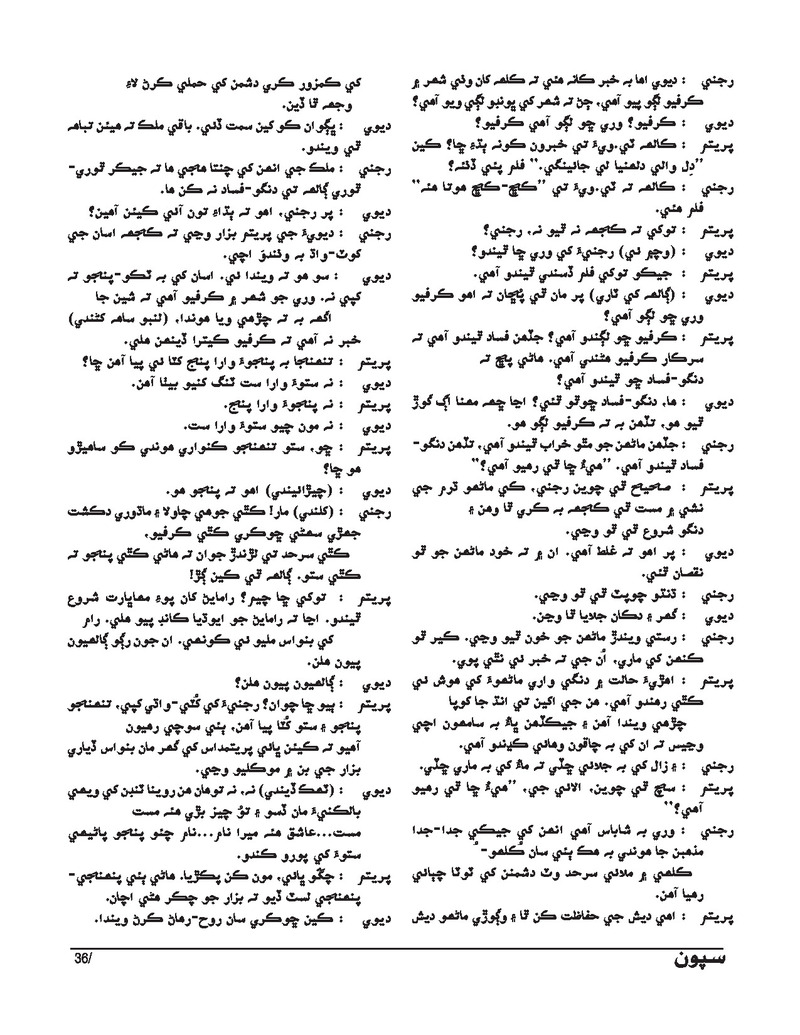 رجني : ديوي اها به خبر ڪانه هئي ته ڪلهه کان وٺي شهر ۾
ڪرفيو لڳو پيو آهي، ڄڻ ته شهر کي ڀونيو لڳي ويو آهي؟
ديوي : ڪرفيو؟ وري ڇو لڳو آهي ڪرفيو؟
پريتم : ڪالهه ٽي.ويءَ تي خبرون ڪونه ٻڌءِ ڇا؟ ڪين
”دِل والي دلهنيا لي جائينگي.“ فلم پئي ڏٺئه؟
رجني : ڪالهه ته ٽي.ويءَ تي ”ڪڇ-ڪڇ هوتا هئه“
فلم هئي.
پريتم : توکي ته ڪجهه نه ٿيو نه، رجني؟
ديوي : (وچ۾ ئي) رجنيءَ کي وري ڇا ٿيندو؟
پريتم : جيڪو توکي فلم ڏسندي ٿيندو آهي.
ديوي : (ڳالهه کي ٽاري) پر مان ٿي پُڇان ته اهو ڪرفيو
وري ڇو لڳو آهي؟
پريتم : ڪرفيو ڇو لڳندو آهي؟ جڏهن فساد ٿيندو آهي ته
سرڪار ڪرفيو هڻندي آهي. هاڻي پڇ ته
دنگو-فساد ڇو ٿيندو آهي؟
ديوي : ها، دنگو-فساد ڇوٿو ٿئي؟ اڃا ڇهه مهنا اڳ گوڙ
ٿيو هو، تڏهن به ته ڪرفيو لڳو هو.
رجني : جڏهن ماڻهن جو مٿو خراب ٿيندو آهي، تڏهن دنگو-
فساد ٿيندو آهي. ”هيءُ ڇا ٿي رهيو آهي؟“
پريتم : صحيح ٿي چوين رجني، ڪي ماڻهو ڌرم جي
نشي ۾ مست ٿي ڪجهه به ڪري ٿا وهن ۽
دنگو شروع ٿي ٿو وڃي.
ديوي : پر اهو ته غلط آهي. ان ۾ ته خود ماڻهن جو ٿو
نقسان ٿئي.
رجني : ڌنڌو چوپٽ ٿي ٿو وڃي.
ديوي : گهر ۽ دڪان جلايا ٿا وڃن.
رجني : رستي ويندڙ ماڻهن جو خون ٿيو وڃي. ڪير ٿو
ڪنهن کي ماري، اُن جي ته خبر ئي نٿي پوي.
پريتم : اهڙيءَ حالت ۾ دنگي واري ماڻهوءَ کي هوش ئي
ڪٿي رهندو آهي. هن جي اکين تي انڌ جا کوپا
چڙهي ويندا آهن ۽ جيڪڏهن ڀاءُ به سامهون اچي
وڃيس ته ان کي به چاقون وهائي ڪڍندو آهي.
رجني : ۽ زال کي به جلائي ڇڏي ته ماءُ کي به ماري ڇڏي.
پريتم : سچ ٿي چوين، الائي جي، ”هيءُ ڇا ٿي رهيو
آهي؟“
رجني : وري به شاباس آهي انهن کي جيڪي جدا-جدا
مذهبن جا هوندي به هڪ ٻئي سان ڪُلهو-
ڪلهي ۾ ملائي سرحد وٽ دشمنن کي ٽوٽا چٻائي
رهيا آهن.
پريتم : اهي ديش جي حفاظت ڪن ٿا ۽ وڳوڙي ماڻهو ديش
کي ڪمزور ڪري دشمن کي حملي ڪرڻ لاءِ
وجهه ٿا ڏين.
ديوي : ڀڳوان ڪو کين سمت ڏئي. باقي ملڪ ته هيئن تباهه
ٿي ويندو.
رجني : ملڪ جي انهن کي چنتا هجي ها ته جيڪر ٿوري-
ٿوري ڳالهه تي دنگو-فساد نه ڪن ها.
ديوي : پر رجني، اهو ته ٻڌاءِ تون آئي ڪيئن آهين؟
رجني : ديويءَ جي پريتم بزار وڃي ته ڪجهه اسان جي
کوٽ-واڌ به وٺندوَ اچي.
ديوي : سو هو ته ويندا ئي. اسان کي به ٽڪو-پنجو ته
کپي نه. وري جو شهر ۾ ڪرفيو آهي ته شين جا
اگهه به ته چڙهي ويا هوندا، (ٿنبو ساهه کڻندي)
خبر نه آهي ته ڪرفيو ڪيترا ڏينهن هلي.
پريتم : تنهنجا به پنجوءَ وارا پنج ڪٿا ئي پيا آهن ڇا؟
ديوي : نه ستوءَ وارا ست ٽنگ کنيو بيٺا آهن.
پريتم : نه پنجوءَ وارا پنج.
ديوي : نه مون چيو ستوءَ وارا ست.
پريتم : ڇو، ستو تنهنجو ڪنواري هوندي ڪو ساهيڙو
هو ڇا؟
ديوي : (چيڙائيندي) اهو ته پنجو هو.
رجني : (کلندي) مار! ڪٿي جوهي چاولا ۽ ماڌوري دڪشت
جهڙي سهڻي ڇوڪري ڪٿي ڪرفيو،
ڪٿي سرحد تي لڙندڙ جوان ته هاڻي ڪٿي پنجو ته
ڪٿي ستو. ڳالهه ٿي ڪين ڳڙ!
پريتم : توکي ڇا چيم؟ رامايڻ کان پوءِ مهاڀارت شروع
ٿيندو. اڃا ته رامايڻ جو ايوڌيا ڪانڊ پيو هلي. رام
کي بنواس مليو ئي ڪونهي. ان جون رڳو ڳالهيون
پيون هلن.
ديوي : ڳالهيون پيون هلن؟
پريتم : ٻيو ڇا چوان؟ رجنيءَ کي کُٽي-واڌي کپي، تنهنجو
پنجو ۽ ستو کُٽا پيا آهن، ٻئي سوچي رهيون
آهيو ته ڪيئن ڀائي پريتمداس کي گهر مان بنواس ڏياري
بزار جي بن ۾ موڪليو وڃي.
ديوي : (ٽهڪ ڏيندي) نه، نه توهان هن روينا ٽنڊن کي ويهي
بالڪنيءَ مان ڏسو ۽ تُوُ چيز بڙي هئه مست
مست...عاشق هئه ميرا نام...نام چئو پنجو پاڻيهي
ستوءَ کي پورو ڪندو.
پريتم : چڱو ڀائي، مون کن پڪڙيا. هاڻي ٻئي پنهنجي-
پنهنجي لسٽ ڏيو ته بزار جو چڪر هڻي اچان.
ديوي : ڪين ڇوڪري سان روح-رهاڻ ڪرڻ ويندا.
سپون
36/